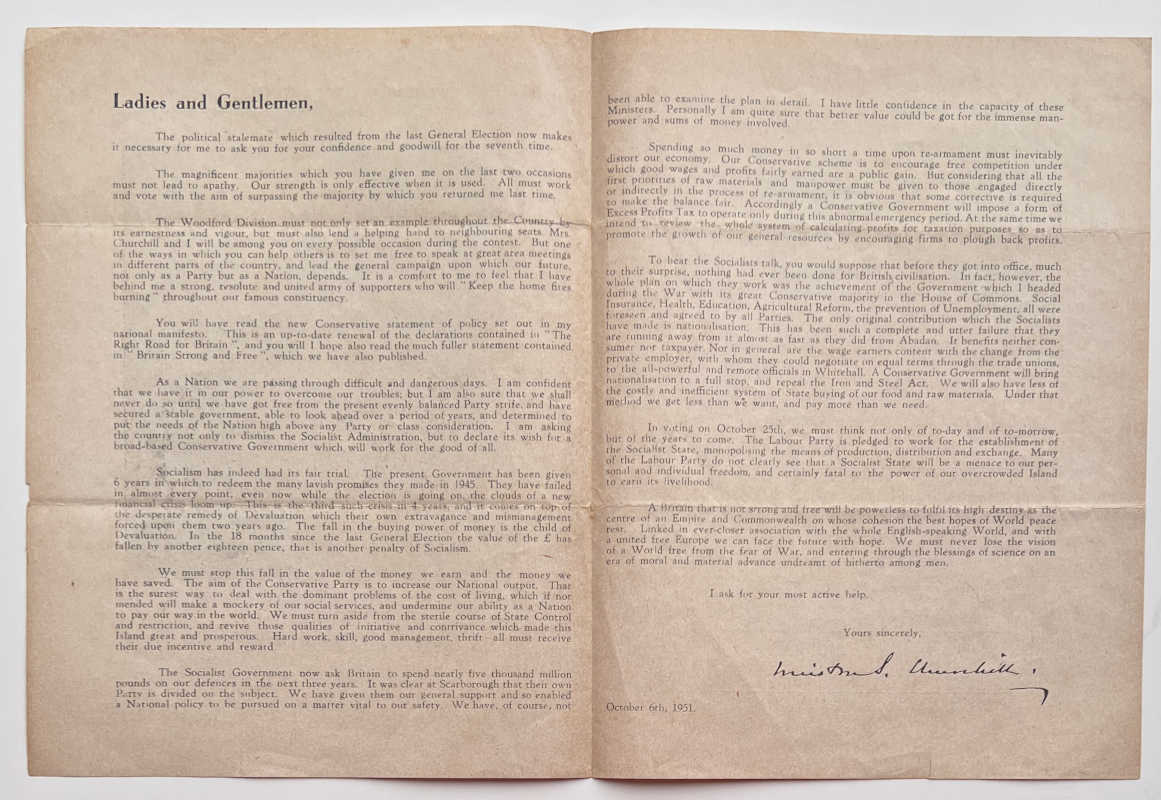 Ladies and Gentlemen,
The political stalemate which resulted from the last General Election now makes
it necessary for me to ask you for your confidence and goodwill for the seventh time.
The magnificent majorities which you have given me on the last two occasions
must not lead to apathy. Our strength is only effective when it is used. All must work
and vote with the aim of surpassing the majority by which you returned me last time.
The Woodford Division must not only set an example throughout the Country by
its earnestness and vigour, but must also lend a helping hand to neighbouring seats. Mrs.
Churchill and I will be among you on every possible occasion during the contest. But one
of the ways in which you can help others is to set me free to speak at great area meetings
in different parts of the country, and lead the general campaign upon which our future,
not only as a Party but as a Nation, depends. It is a comfort to me to feel that I have
behind me a strong, resolute and united army of supporters who will "Keep the home fires
burning" throughout our famous constituency.
You will have read the new Conservative statement of policy set out in my
national manifesto. This is an up-to-date renewal of the declarations contained in "The
Right Road for Britain", and you will I hope also read the much fuller statement contained
in "Britain Strong and Free", which we have also published.
As a Nation we are passing through difficult and dangerous days. I am confident
that we have it in our power to overcome our troubles; but I am also sure that we shall
never do so until we have got free from the present evenly balanced Party strife, and have
secured a stable government, able to look ahead over a period of years, and determined to
put the needs of the Nation high above any Party or class consideration. I am asking
the country not only to dismiss the Socialist Administration, but to declare its wish for a
broad-based Conservative Government which will work for the good of all.
Socialism has indeed had its fair trial. The present Government has been given
6 years in which to redeem the many lavish promises they made in 1945. They have failed
in almost every point, even now while the election is going on, the clouds of a new
financial crisis loom up. This is the third such crisis in 4 years, and it comes on top of
the desperate remedy of Devaluation which their own extravagance and mismanagement
forced upon them two years ago. The fall in the buying power of money is the child of
Devaluation. In the 18 months since the last General Election the value of the £ has
fallen by another eighteen pence, that is another penalty of Socialism.
We must stop this fall in the value of the money we earn and the money we
have saved. The aim of the Conservative Party is to increase our National output. That
is the surest way to deal with the dominant problems of the cost of living, which if not
mended will make a mockery of our social services, and undermine our ability as a Nation
to pay our way in the world. We must turn aside from the sterile course of State Control
and restriction, and revive those qualities of initiative and contrivance which made this
Island great and prosperous. Hard work, skill, good management, thrift—all must receive
their due incentive and reward.
The Socialist Government now ask Britain to spend nearly five thousand million
pounds on our defences in the next three years. It was clear at Scarborough that their own
Party is divided on the subject. We have given them our general support and so enabled
a National policy to be pursued on a matter vital to our safety. We have, of course, not
been able to examine the plan in detail. I have little confidence in the capacity of these
Ministers. Personally I am quite sure that better value could be got for the immense man-
power and sums of money involved.
Spending so much money in so short a time upon re-armament must inevitably
distort our economy. Our Conservative scheme is to encourage free competition under
which good wages and profits fairly earned are a public gain. But considering that all the
first priorities of raw materials and manpower must be given to those engaged directly
or indirectly in the process of re-armament, it is obvious that some corrective is required
to make the balance fair. Accordingly a Conservative Government will impose a form of
Excess Profits Tax to operate only during this abnormal emergency period. At the same time we
intend to review the whole system of calculating profits for taxation purposes so as to
promote the growth of our general resources by encouraging firms to plough back profits.
To hear the Socialists talk, you would suppose that before they got into office, much
to their surprise, nothing had ever been done for British civilisation. In fact, however, the
whole plan on which they work was the achievement of the Government which I headed
during the War with its great Conservative majority in the House of Commons. Social
Insurance, Health, Education, Agricultural Reform, the prevention of Unemployment, all were
foreseen and agreed to by all Parties. The only original contribution which the Socialists
have made is nationalisation. This has been such a complete and utter failure that they
are running away from it almost as fast as they did from Abadan. It benefits neither con-
sumer not taxpayer. Nor in general are the wage earners content with the change from the
private employer, with whom they could negotiate on equal terms through the trade unions,
to the all-powerful and remote officials in Whitehall. A Conservative Government will bring
nationalisation to a full stop, and repeal the Iron and Steel Act. We will also have less of
the costly and inefficient system of State buying of our food and raw materials. Under that
method we get less than we want, and pay more than we need.
In voting on October 25th, we must think not only of to-day and of to-morrow,
but of the years to come. The Labour Party is pledged to work for the establishment of
the Socialist State, monopolising the means of production, distribution and exchange. Many
of the Labour Party do not clearly see that a Socialist State will be a menace to our per-
sonal and individual freedom, and certainly fatal to the power of our overcrowded Island
to earn its livelihood.
A Britain that is not strong and free will be powerless to fulfil its high destiny as the
centre of an Empire and Commonwealth on whose cohesion the best hopes of World peace
rest. Linked in ever-closer association with the whole English-speaking World, and with
a united free Europe we can face the future with hope. We must never lose the vision
of a World free from the fear of War, and entering through the blessings of science on an
era of moral and material advance undreamt of hitherto among men.
I ask for your most active help.
Yours sincerely,
Winston S. Churchill.
October 6th, 1951.